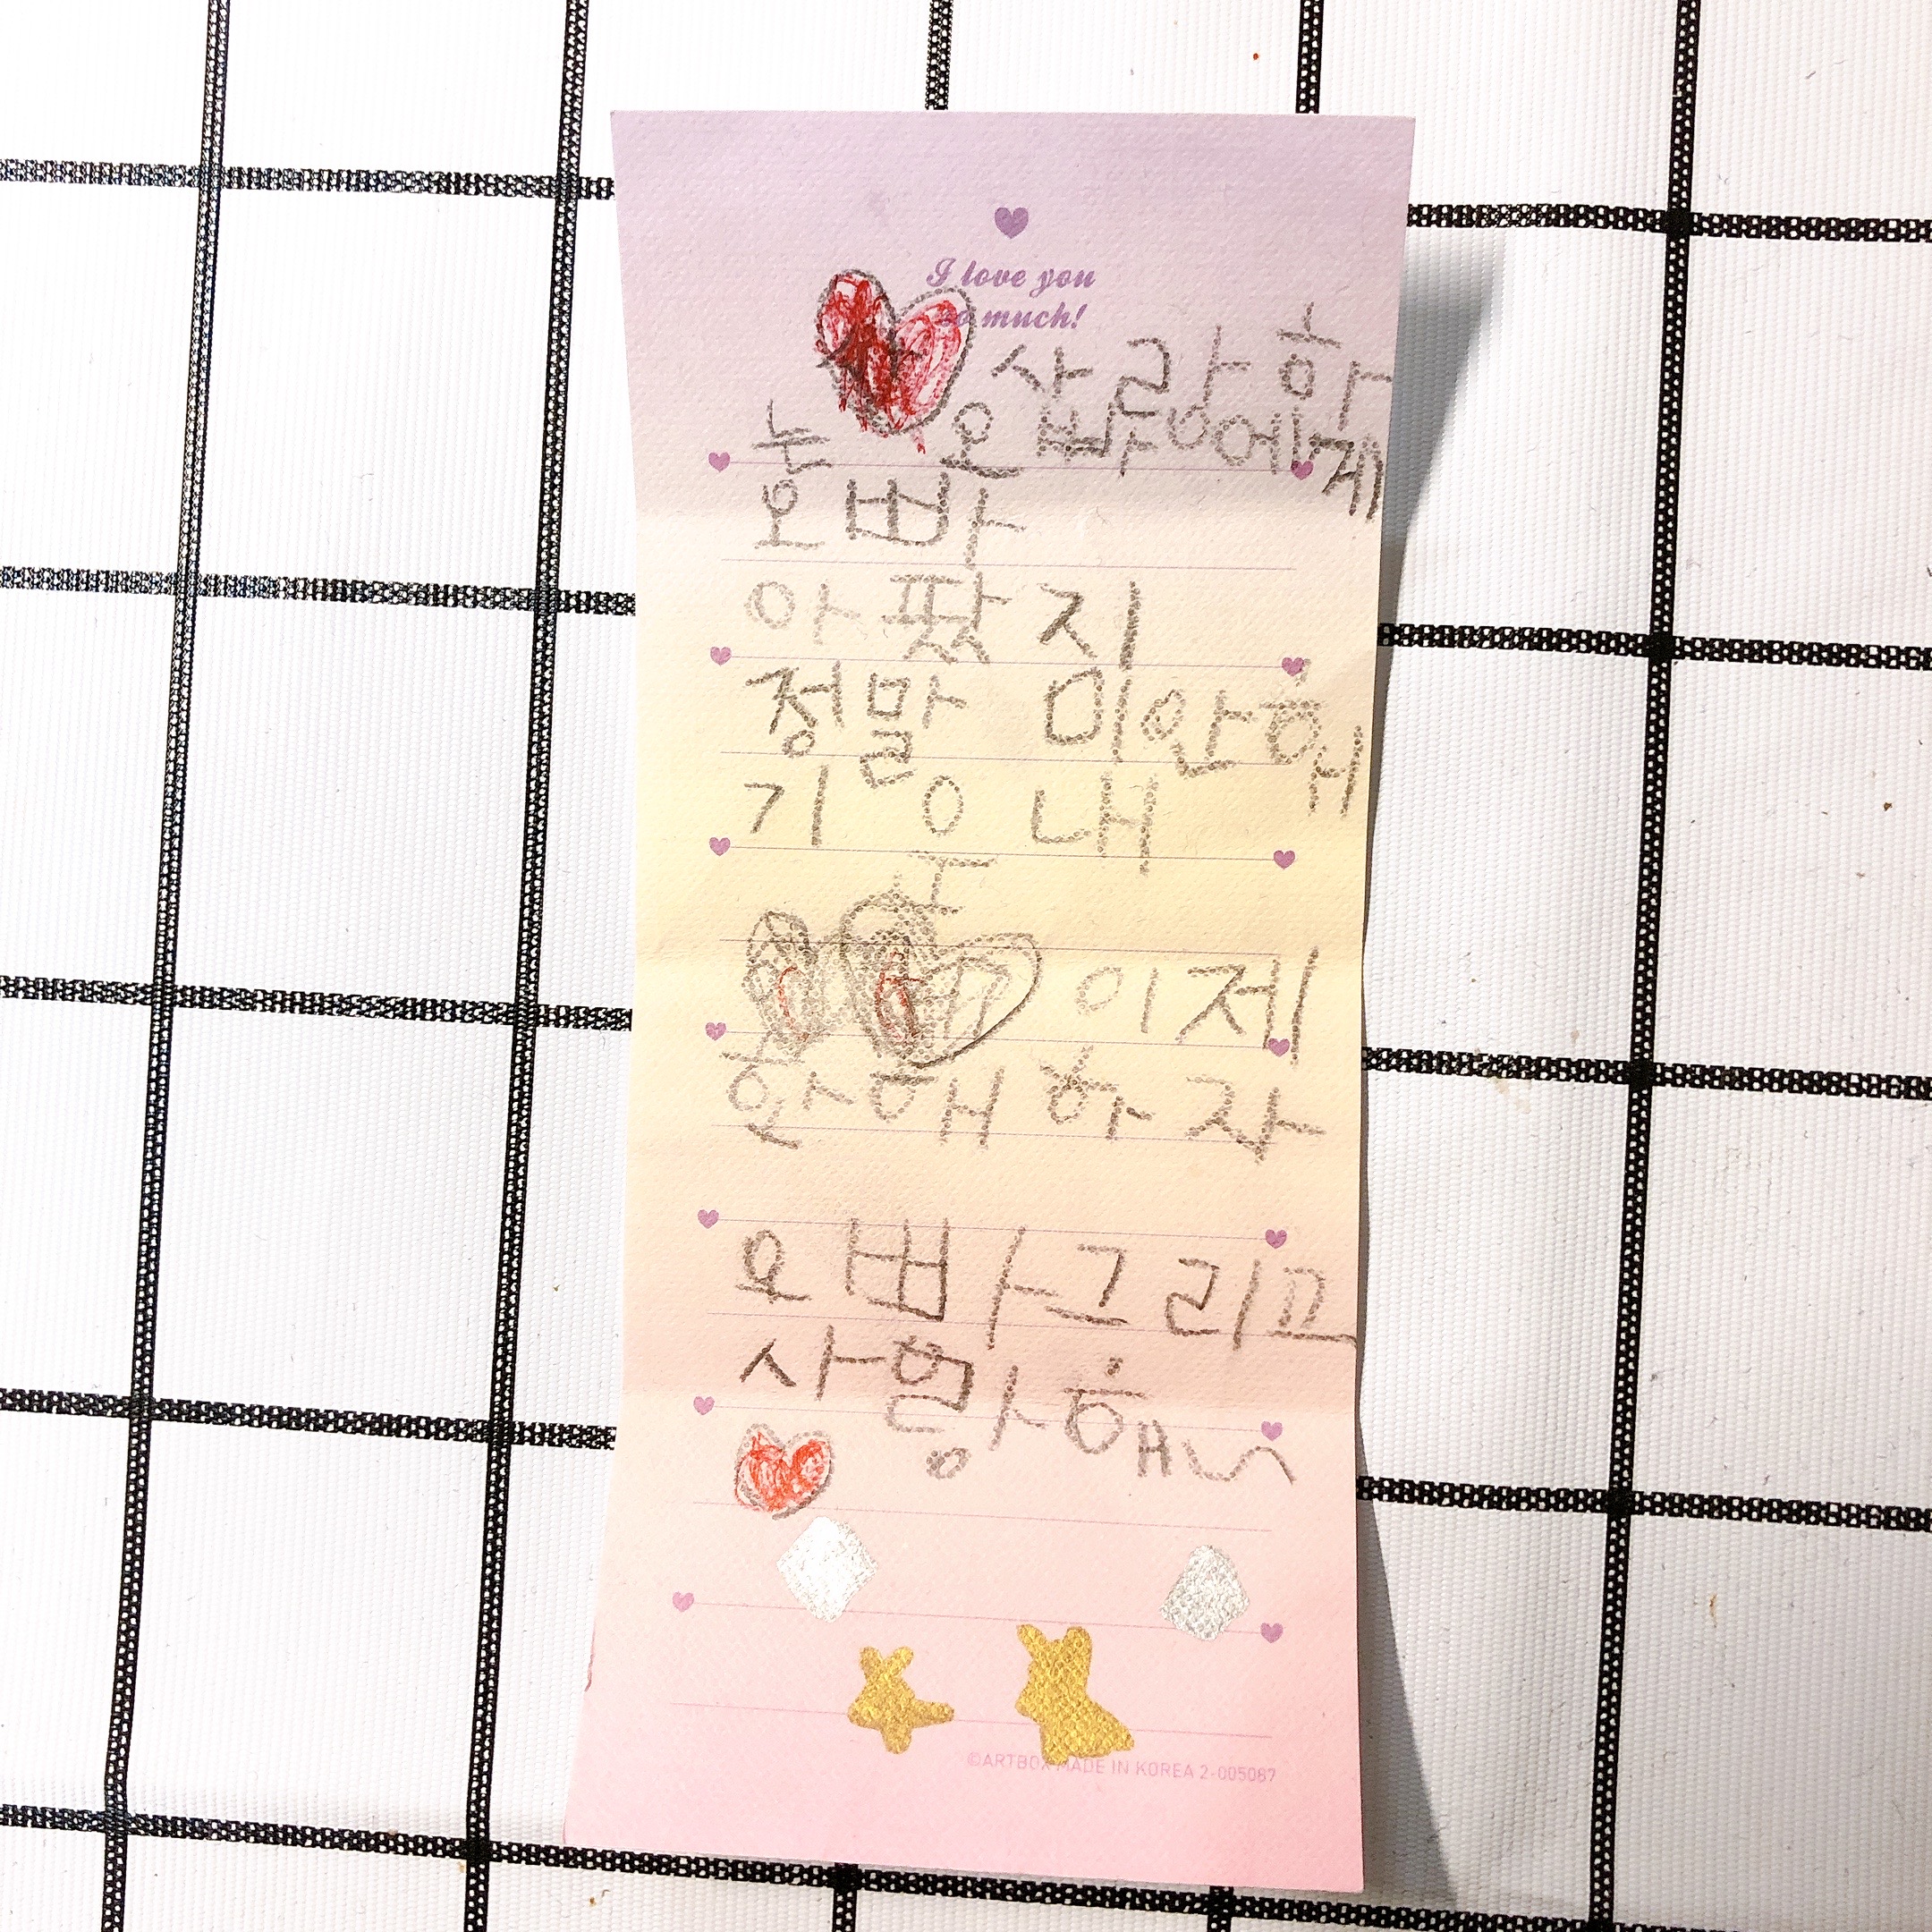 I love you
so much!
사랑하
는 오빠에게
오빠
아팠지
정말 미안해
기운내
이제
화해하자
오빠 그리고
사랑해~
©ARTBOX MADE IN KOREA 2-005087